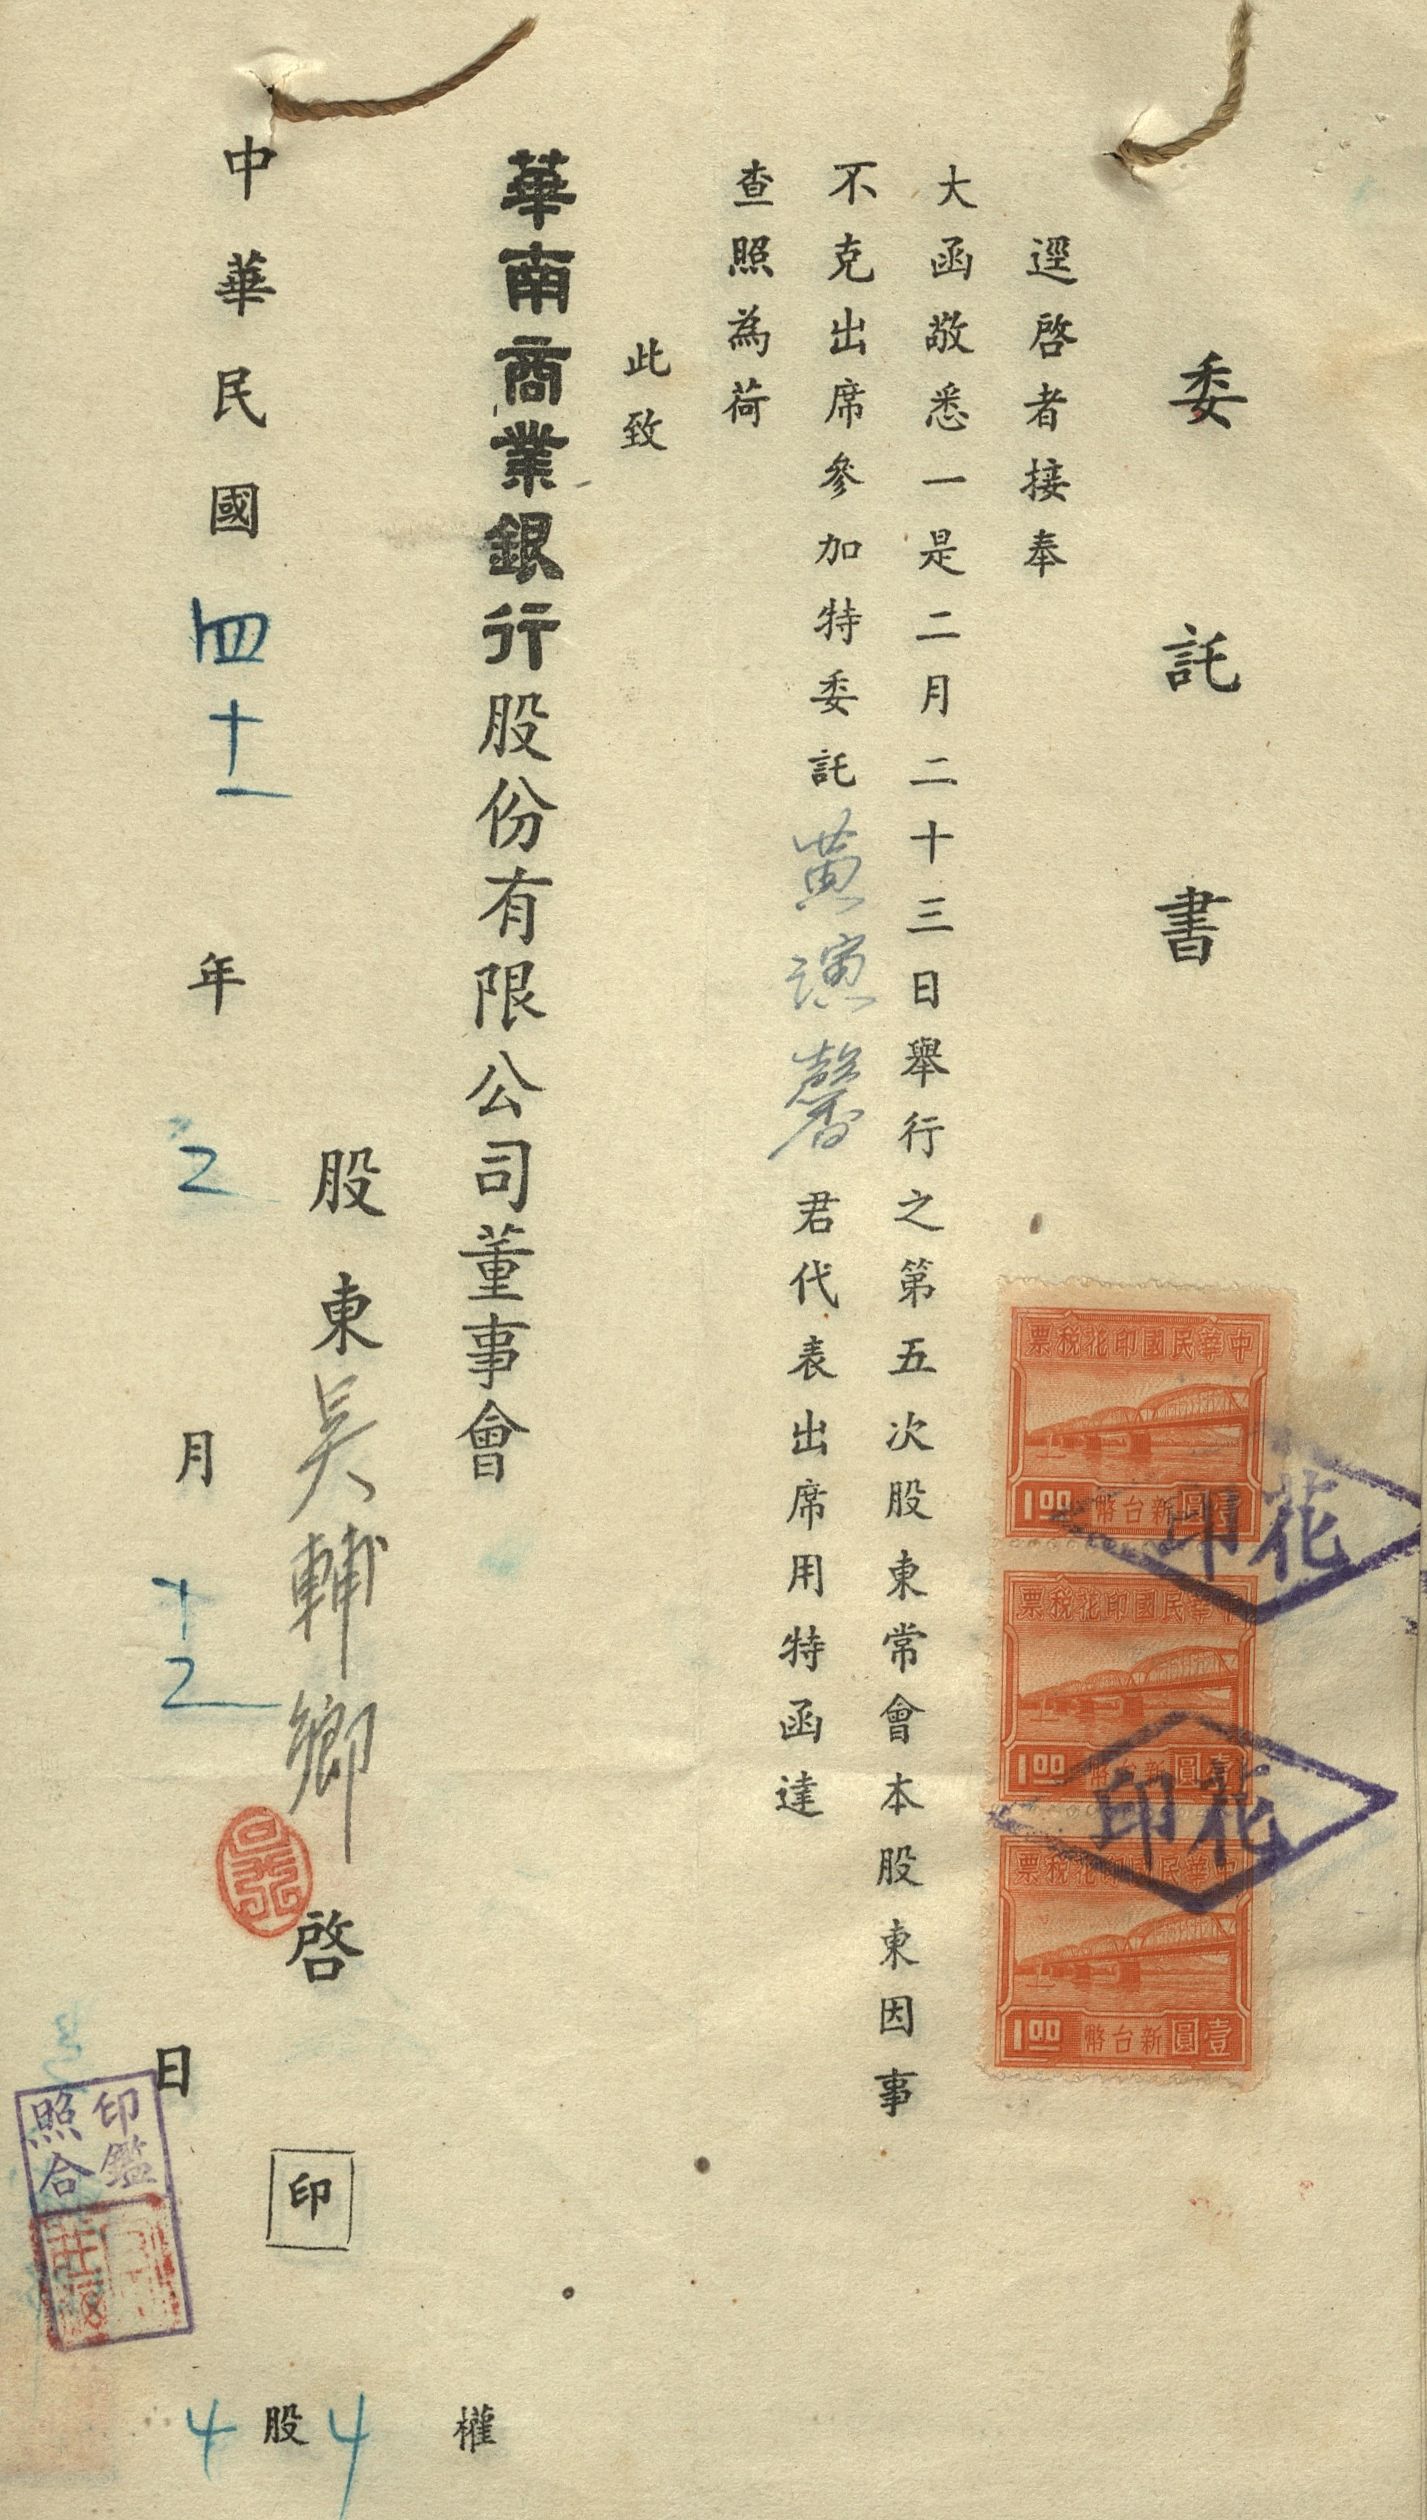 委託書
逕啓者接奉
大函敬悉一是二月二十三日舉行之第五次股東常會本股東因事
不克出席參加特委託黃演馨君代表出席用特函達
查照為荷
此致
華南商業銀行股份有限公司董事會
股東吳輔鄉啓
印
中華民國四十一年2月十2日
4股4權
中華民國印花稅票
壹圓新台幣
1.00
中華民國印花稅票
壹圓新台幣
1.00
中華民國印花稅票
壹圓新台幣
1.00
印花
印花
印鑑
照合